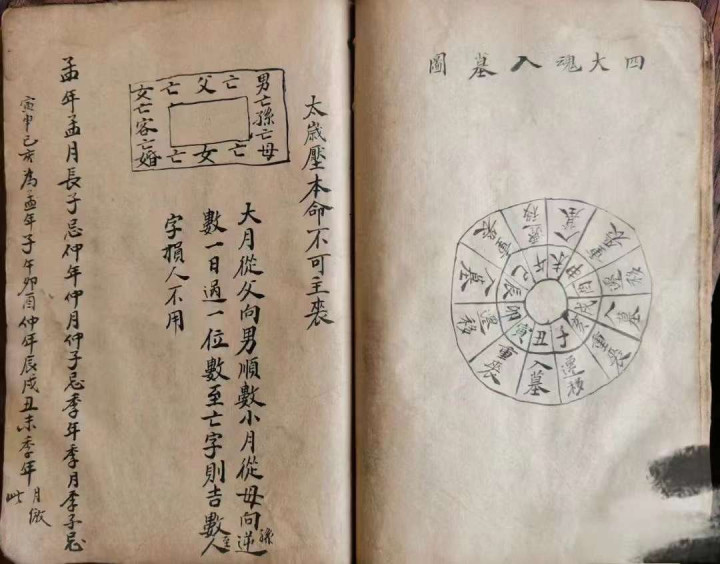 四大魂入墓圖
子丑寅卯辰巳午未申酉戌亥
遷移
入墓
重喪
遷移
入墓
重喪
遷移
入墓
重喪
遷移
入墓
重喪
太歲壓本命不可主喪
男亡孫亡母
亡父亡
亡女亡
女亡客亡婚
大月從父向男順數小月從母向孫逆
數一日過一位數至亡字則吉數至人
字損人不用
孟年孟月長子忌仲年仲月仲子忌季年季月季子忌
寅申巳亥為孟年子午卯酉仲年辰戌丑未季年月倣此